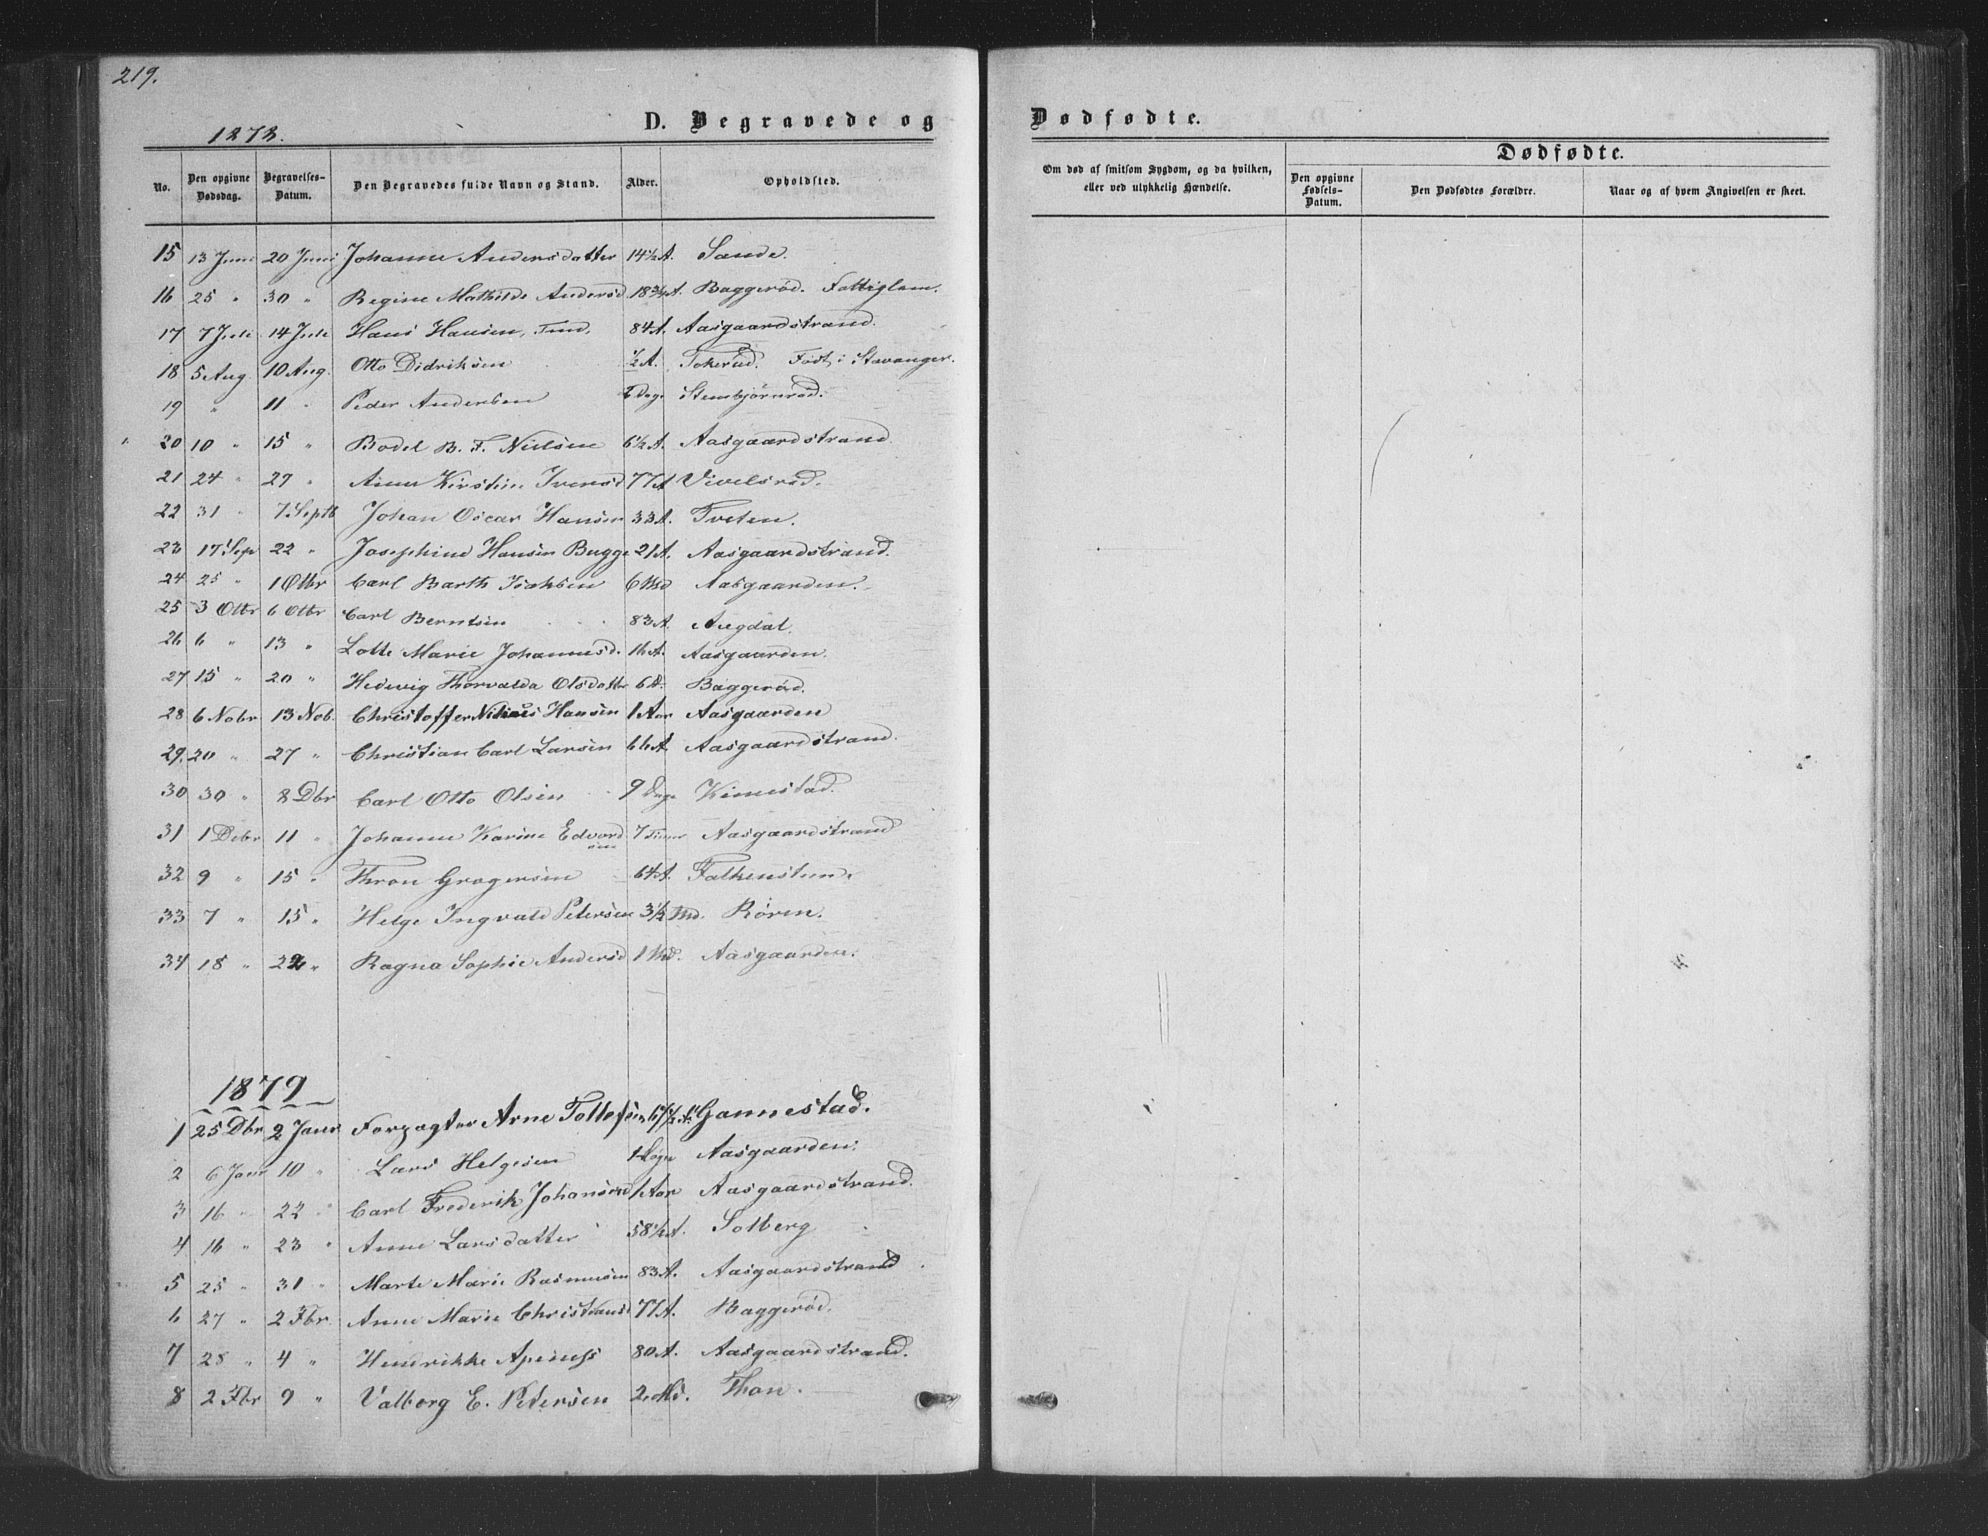 219.
1878.
D. Begravede og
No.
Den opgivne Dødsdag.
Begravelses-Datum.
Den Begravedes fulde Navn og Stand.
Alder.
Opholdsted.
15 13 Juni 20 Juni Johanne Andersdatter 14½ A. Sande.
16 25 " 30 " Regine Mathilde Andersd 18¾ A. Baggerød. Fattiglem.
17 7 Juli 14 Juli Hans Hansen, 84 A. Aasgaardstrand.
18 5 Aug. 10 Aug. Otto Didriksen ½ A. Tokerød. Født i Stavanger.
19 " 11 " Peder Andersen Dage Stensbjørnrød.
20 10 " 15 " Bodel B. F. Nielsen 6½ A. Aasgaardstrand.
21 24 " 29 " Anne Kirstine Iversd 77 A Vivelsrød.
22 31 " 7 Septb Johan Oscar Hansen 33 A. Tveten.
23 17 Sep 22 " Josephine Hansen Bugge 21 A. Aasgaardstrand.
24 25 " 1 Otbr Carl Barth Isaksen 6 Md Aasgaarden.
25 3 Otbr 6 Otbr Carl Berntsen 83 A. Augdal.
26 6 " 13 " Lotte Marie Johannesd. 16 A. Aasgaarden.
27 15 " 20 " Hedevig Thorvalda Olsdatter 6 A. Baggerød.
28 6 Nobr 13 Nob. Christoffer Hansen 1 Aar Aasgaarden
29. 20 " 27 " Christian Carl Larsen 66 A. Aasgaardstrand.
30 30 " 8 Dbr Carl Otto Olsen 9 Dage Kimestad.
31 1 Debr 11 " Johanne Karine Edvard 7 Timer Aasgaardstrand
sen
32 9 " 15 " Thron Grogersen 64 A. Falkensten.
33 7 " 15 " Helge Ingvald Petersen 3½ Md. Røren.
34 18 " 22 " Ragna Sophie Andersd 1 Md. Aasgaarden.
1879
1 25 Dbr 2 Janr Forpagter Arne Tollefsen 67½ A. Gannestad.
2 6 Janr 10 " Lars Helgesen Aasgaarden.
3 16 " 22 " Carl Frederik Johansen 1 Aar Aasgaardstrand.
4 16 " 23 " Anne Larsdatter 58½ A. Solberg
5 25 " 31 " Marte Marie Rasmusen 83 A. Aasgaardstrand
6 27 " 2 Fbr. Anne Marie Christiansd 77 A. Baggerød.
7 28 " 4 " Hendrikke 80 A. Aasgaardstrand.
8 2 Fbr 9 " Valborg E. Petersen 2 Md. Thon.
Dødfødte.
Om død af smitsom Sygdom, og da hvilken, eller ved ulykkelig Hændelse.
Dødfødte.
Den opgivne Fødsels-Datum.
Den Dødfødtes Forældre.
Naar og af hvem Angivelsen er skeet.